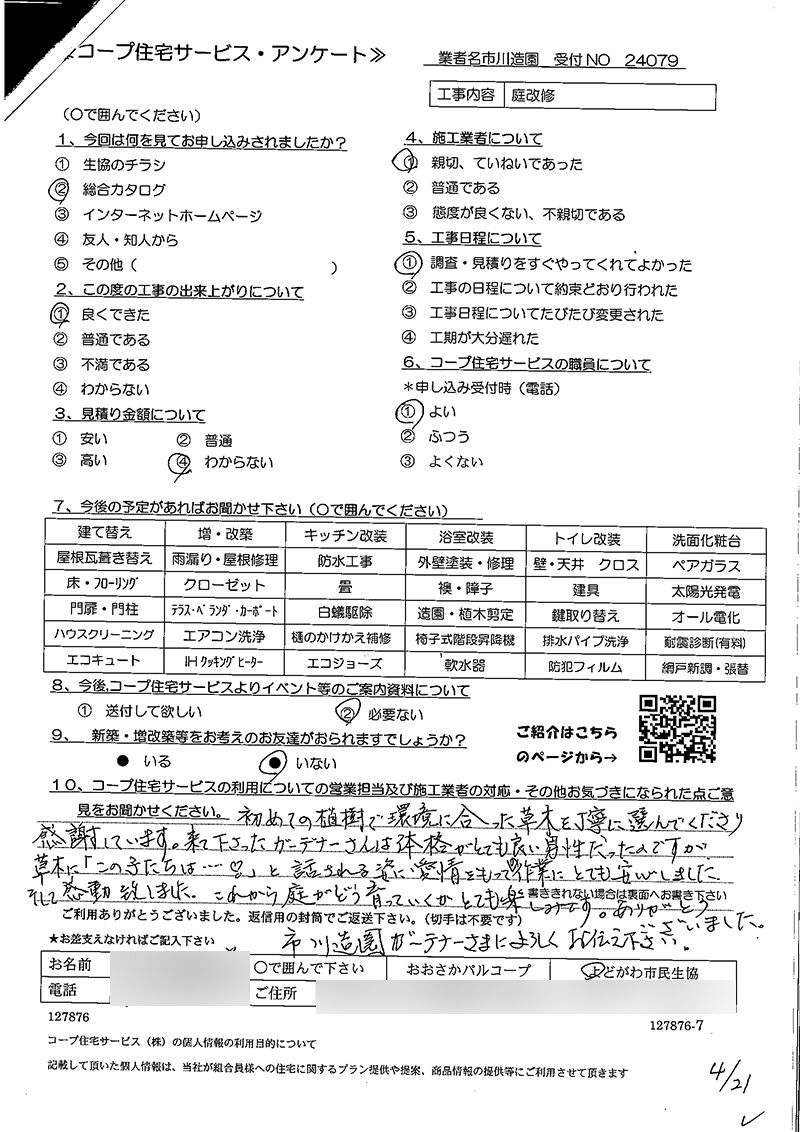 コープ住宅サービス・アンケート≫
業者名市川造園 受付NO 24079
工事内容 庭改修
（○で囲んでください）
１、今回は何を見てお申し込みされましたか？
① 生協のチラシ
② 総合カタログ
③ インターネットホームページ
④ 友人・知人から
⑤ その他（ ）
２、この度の工事の出来上がりについて
① 良くできた
② 普通である
③ 不満である
④ わからない
３、見積り金額について
① 安い ② 普通
③ 高い ④ わからない
４、施工業者について
① 親切、ていねいであった
② 普通である
③ 態度が良くない、不親切である
５、工事日程について
① 調査・見積りをすぐやってくれてよかった
② 工事の日程について約束どおり行われた
③ 工事日程についてたびたび変更された
④ 工期が大分遅れた
６、コープ住宅サービスの職員について
＊申し込み受付時（電話）
① よい
② ふつう
③ よくない
７、今後の予定があればお聞かせ下さい（○で囲んでください）
建て替え 増・改築 キッチン改装 浴室改装 トイレ改装 洗面化粧台
屋根瓦葺き替え 雨漏り・屋根修理 防水工事 外壁塗装・修理 壁・天井 クロス ペアガラス
床・ﾌﾛｰﾘﾝｸﾞ クローゼット 畳 襖・障子 建具 太陽光発電
門扉・門柱 ﾃﾗｽ・ﾍﾞﾗﾝﾀﾞ・ｶｰﾎﾟｰﾄ 白蟻駆除 造園・植木剪定 鍵取り替え オール電化
ハウスクリーニング エアコン洗浄 樋のかけかえ補修 椅子式階段昇降機 排水パイプ洗浄 耐震診断(有料)
エコキュート IHｸｯｷﾝｸﾞﾋｰﾀｰ エコジョーズ 軟水器 防犯フィルム 網戸新調・張替
８、今後､コープ住宅サービスよりイベント等のご案内資料について
① 送付して欲しい ② 必要ない
９、 新築・増改築等をお考えのお友達がおられますでしょうか？
● いる ● いない
ご紹介はこちら
のページから→
１０、コープ住宅サービスの利用についての営業担当及び施工業者の対応・その他お気づきになられた点ご意
見をお聞かせください。 初めての植樹で環境に合った草木を丁寧に選んでくださり
感謝しています。来て下さったガーデナーさんは体格がとても良い男性だったのですが
草木に「この子たちは…♡」と話される姿に愛情をもって作業にとても安心しました
そして感動致しました。これから庭がどう育っていくかとても楽しみです。ありがとう
書ききれない場合は裏面へお書き下さい
ございました。
ご利用ありがとうございました。返信用の封筒でご返送下さい。（切手は不要です）
市川造園ガーデナーさまによろしくお伝え下さい。
★お差支えなければご記入下さい
お名前 ○で囲んで下さい おおさかパルコープ よどがわ市民生協
電話 ご住所
127876
127876-7
コープ住宅サービス（株）の個人情報の利用目的について
記載して頂いた個人情報は、当社が組合員様への住宅に関するプラン提供や提案、商品情報の提供等にご利用させて頂きます
4/21